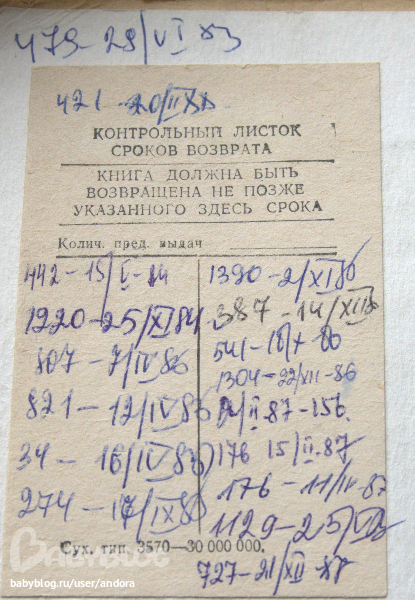 479-28/VI 83
421-20/II
КОНТРОЛЬНЫЙ ЛИСТОК
СРОКОВ ВОЗВРАТА
КНИГА ДОЛЖНА БЫТЬ
ВОЗВРАЩЕНА НЕ ПОЗЖЕ
УКАЗАННОГО ЗДЕСЬ СРОКА
Колич. пред. выдач
442-15/V-84
1220-25/XI 84
807-7/IV 86
821-12/IV 86
34-16/IV 86
274-17/IX 86
1390-2/XI 86
387-14/XII
541-18/X 86
1304-22/XII-86
II-87-156
176 15/II-87
176-11/IV-87
1129-25/
727-21/XII-87
Сух. тип. 3570—30 000 000.
babyblog.ru/user/andora